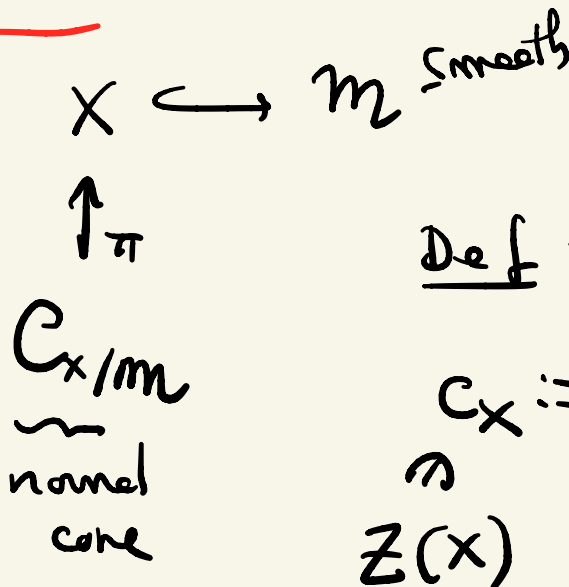 X ↪ M smooth
↑ π
Def
C_{X/M}
C_X :=
normal
cone
∩
Z(X)